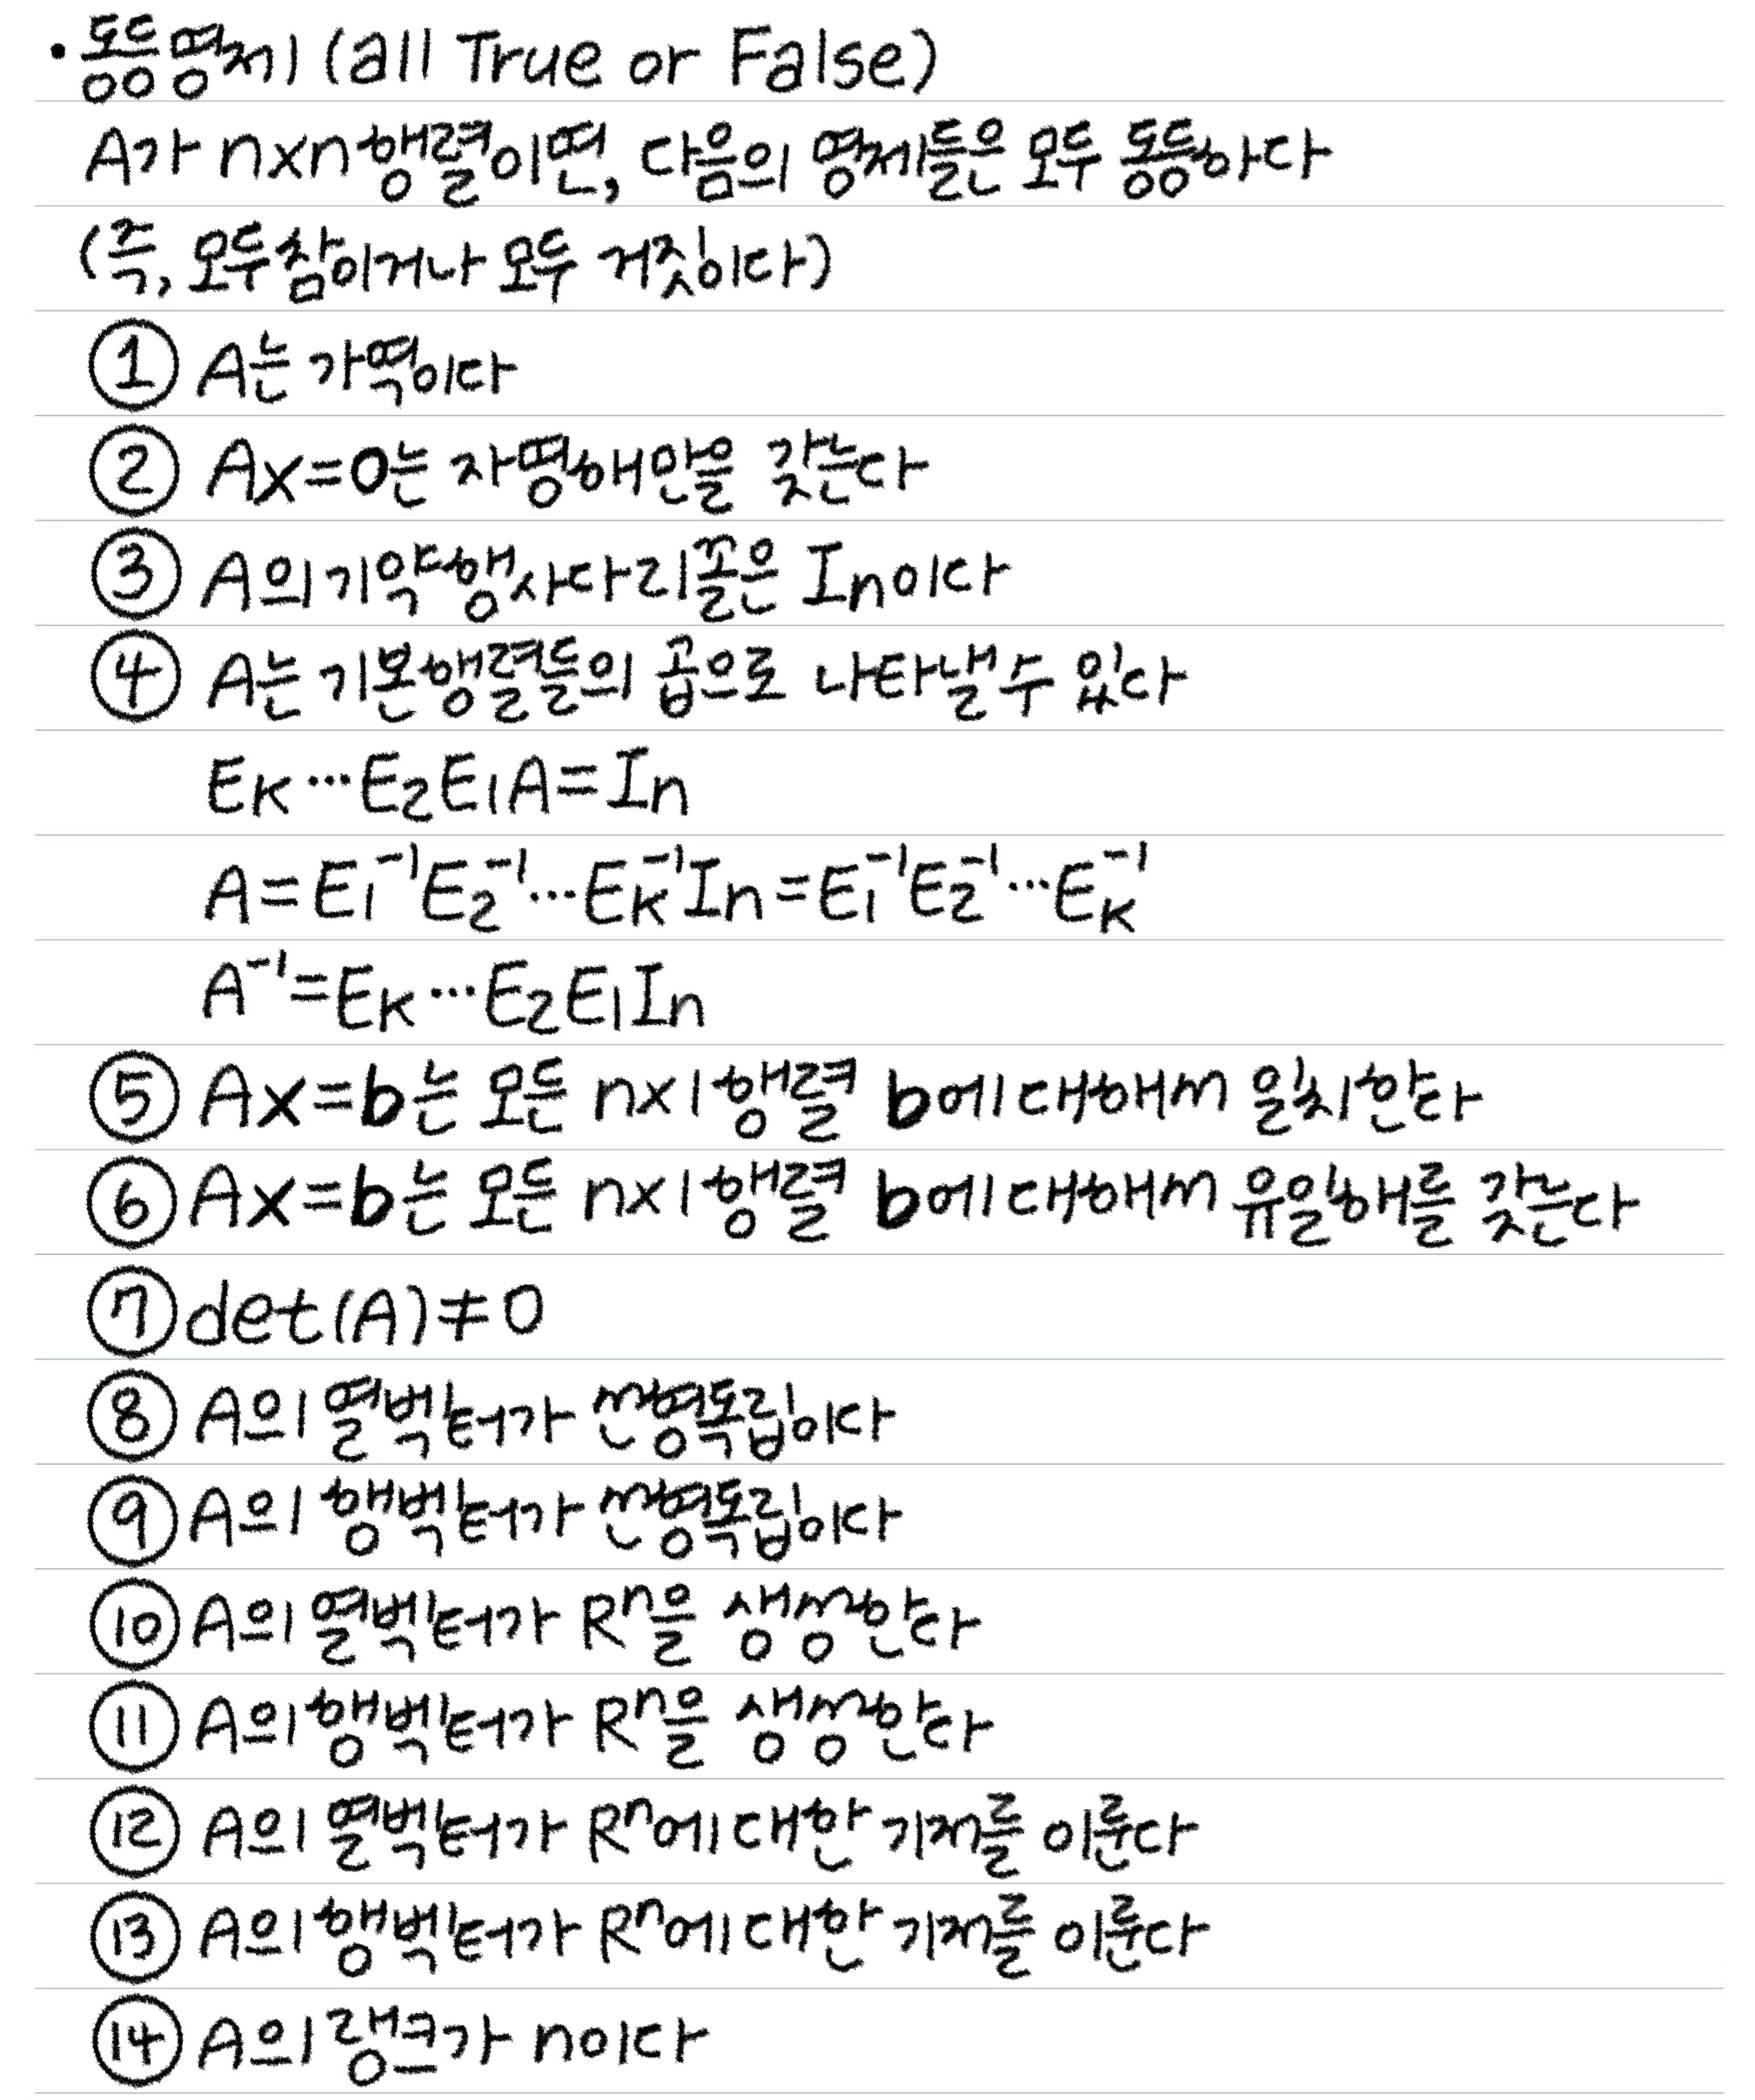 • 동등명제 (all True or False)
A가 n×n행렬이면, 다음의 명제들은 모두 동등하다
(즉, 모두참이거나 모두 거짓이다)
① A는 가역이다
② Ax=0는 자명해만을 갖는다
③ A의 기약행사다리꼴은 In이다
④ A는 기본행렬들의 곱으로 나타낼수 있다
Eₖ⋯E₂E₁A=Iₙ
A=E₁⁻¹E₂⁻¹⋯Eₖ⁻¹Iₙ=E₁⁻¹E₂⁻¹⋯Eₖ⁻¹
A⁻¹=Eₖ⋯E₂E₁Iₙ
⑤ Ax=b는 모든 n×1행렬 b에대해서 일치한다
⑥ Ax=b는 모든 n×1행렬 b에대해서 유일해를 갖는다
⑦ det(A)≠0
⑧ A의 열벡터가 선형독립이다
⑨ A의 행벡터가 선형독립이다
⑩ A의 열벡터가 Rⁿ을 생성한다
⑪ A의 행벡터가 Rⁿ을 생성한다
⑫ A의 열벡터가 Rⁿ에 대한 기저를 이룬다
⑬ A의 행벡터가 Rⁿ에 대한 기저를 이룬다
⑭ A의 랭크가 n이다